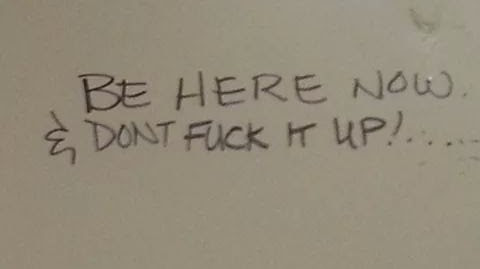 BE HERE NOW.
& DONT FUCK IT UP!......